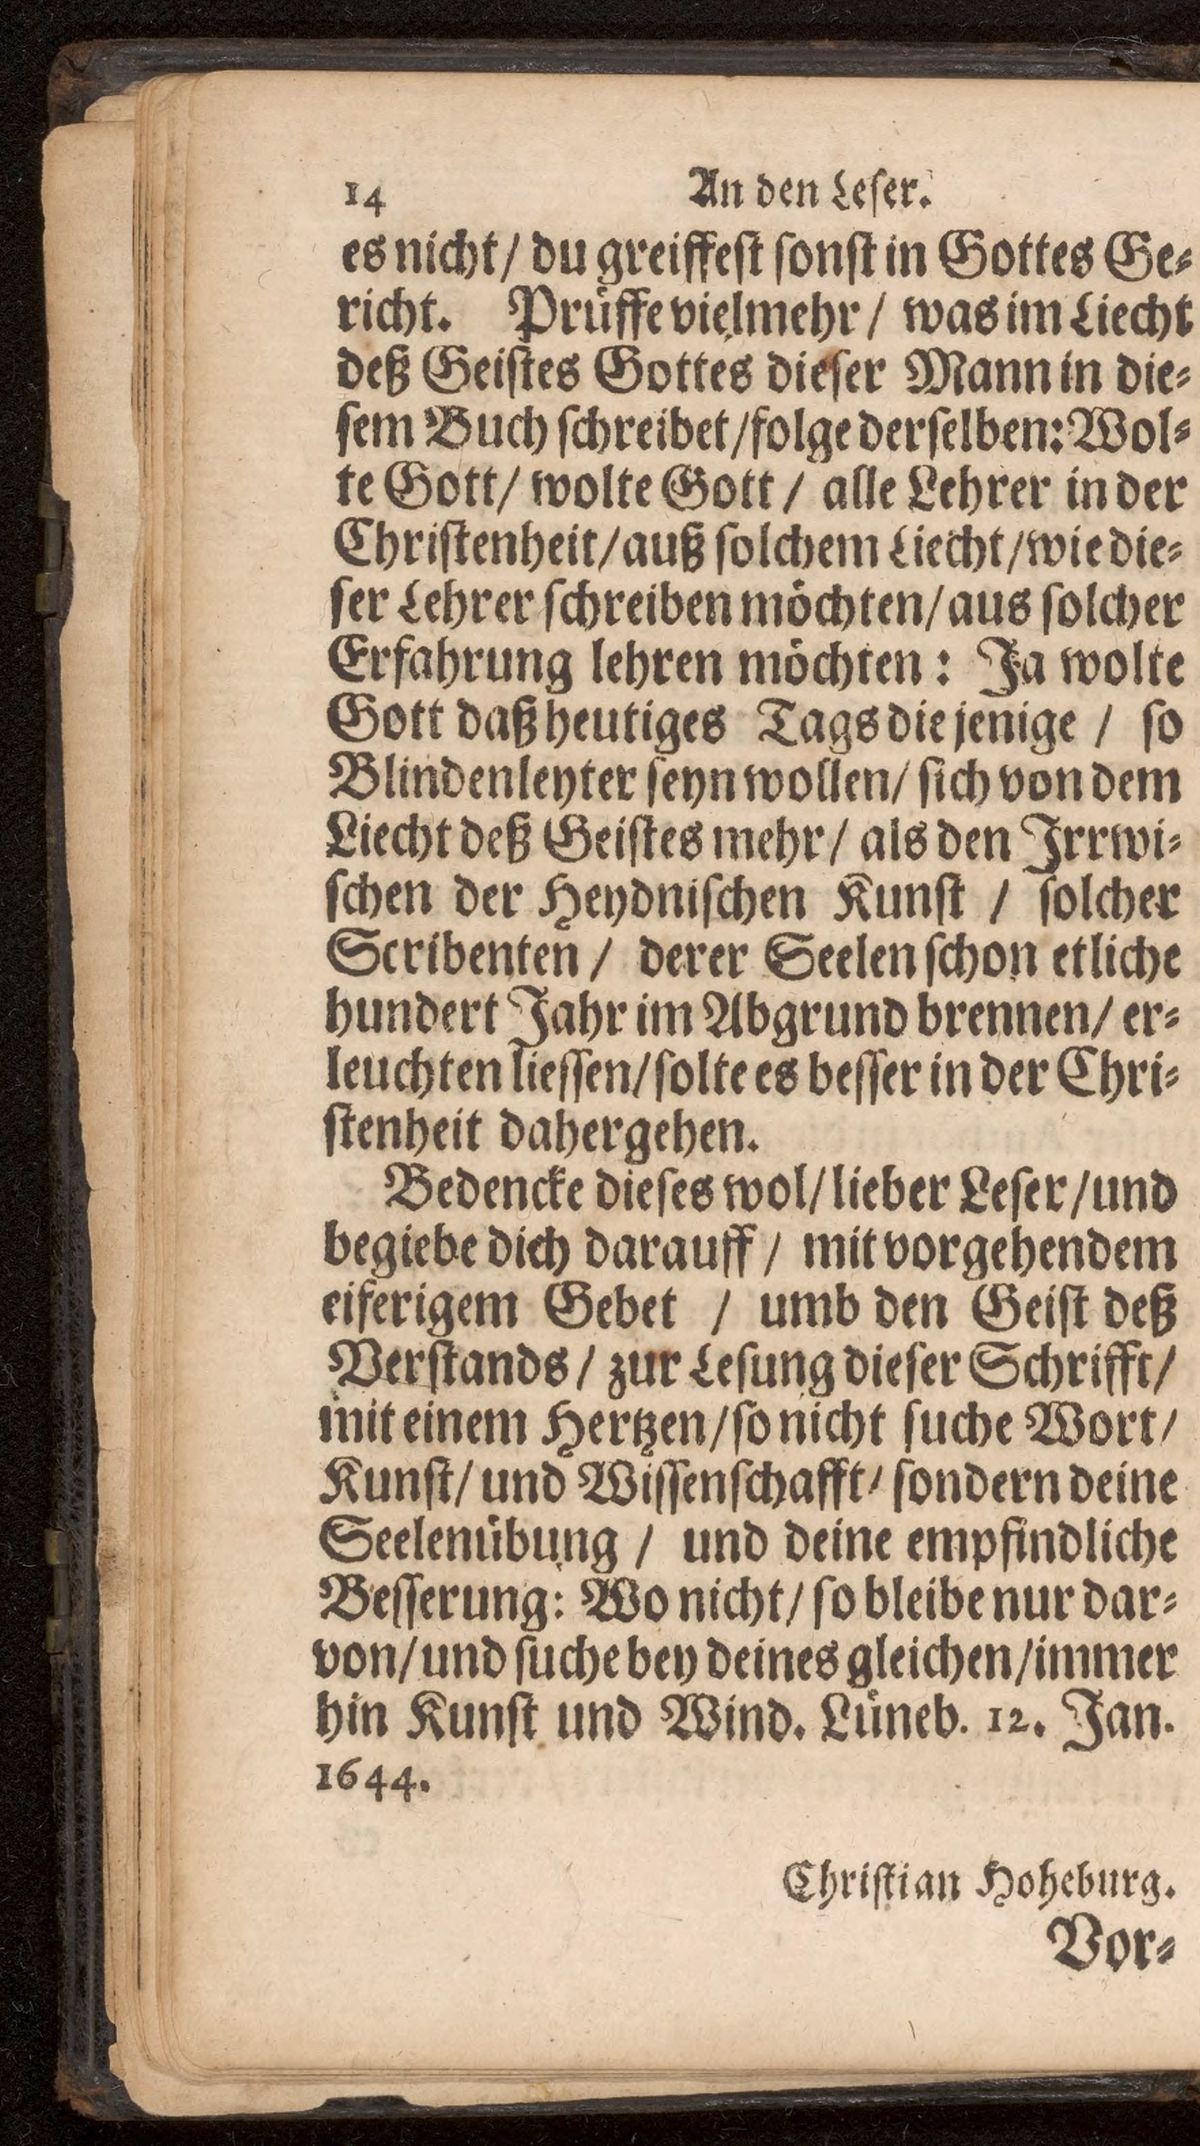 14 An den Leser.
es nicht / du greiffest sonst in Gottes Ge-
richt. Prüffe vielmehr / was im Liecht
deß Geistes Gottes dieser Mann in die-
sem Buch schreibet / folge derselben: Wol-
te Gott / wolte Gott / alle Lehrer in der
Christenheit / auß solchem Liecht / wie die-
ser Lehrer schreiben möchten / aus solcher
Erfahrung lehren möchten: Ja wolte
Gott daß heutiges Tags die jenige / so
Blindenleyter seyn wollen / sich von dem
Liecht deß Geistes mehr / als den Irrwi-
schen der Heydnischen Kunst / solcher
Scribenten / derer Seelen schon etliche
hundert Jahr im Abgrund brennen / er-
leuchten liessen / solte es besser in der Chri-
stenheit dahergehen.
Bedencke dieses wol / lieber Leser / und
begiebe dich darauff / mit vorgehendem
eiferigem Gebet / umb den Geist deß
Verstands / zur Lesung dieser Schrifft /
mit einem Hertzen / so nicht suche Wort /
Kunst / und Wissenschafft / sondern deine
Seelenübung / und deine empfindliche
Besserung: Wo nicht / so bleibe nur dar-
von / und suche bey deines gleichen / immer
hin Kunst und Wind. Lüneb. 12. Jan.
1644.
Christian Hoheburg.
Vor-